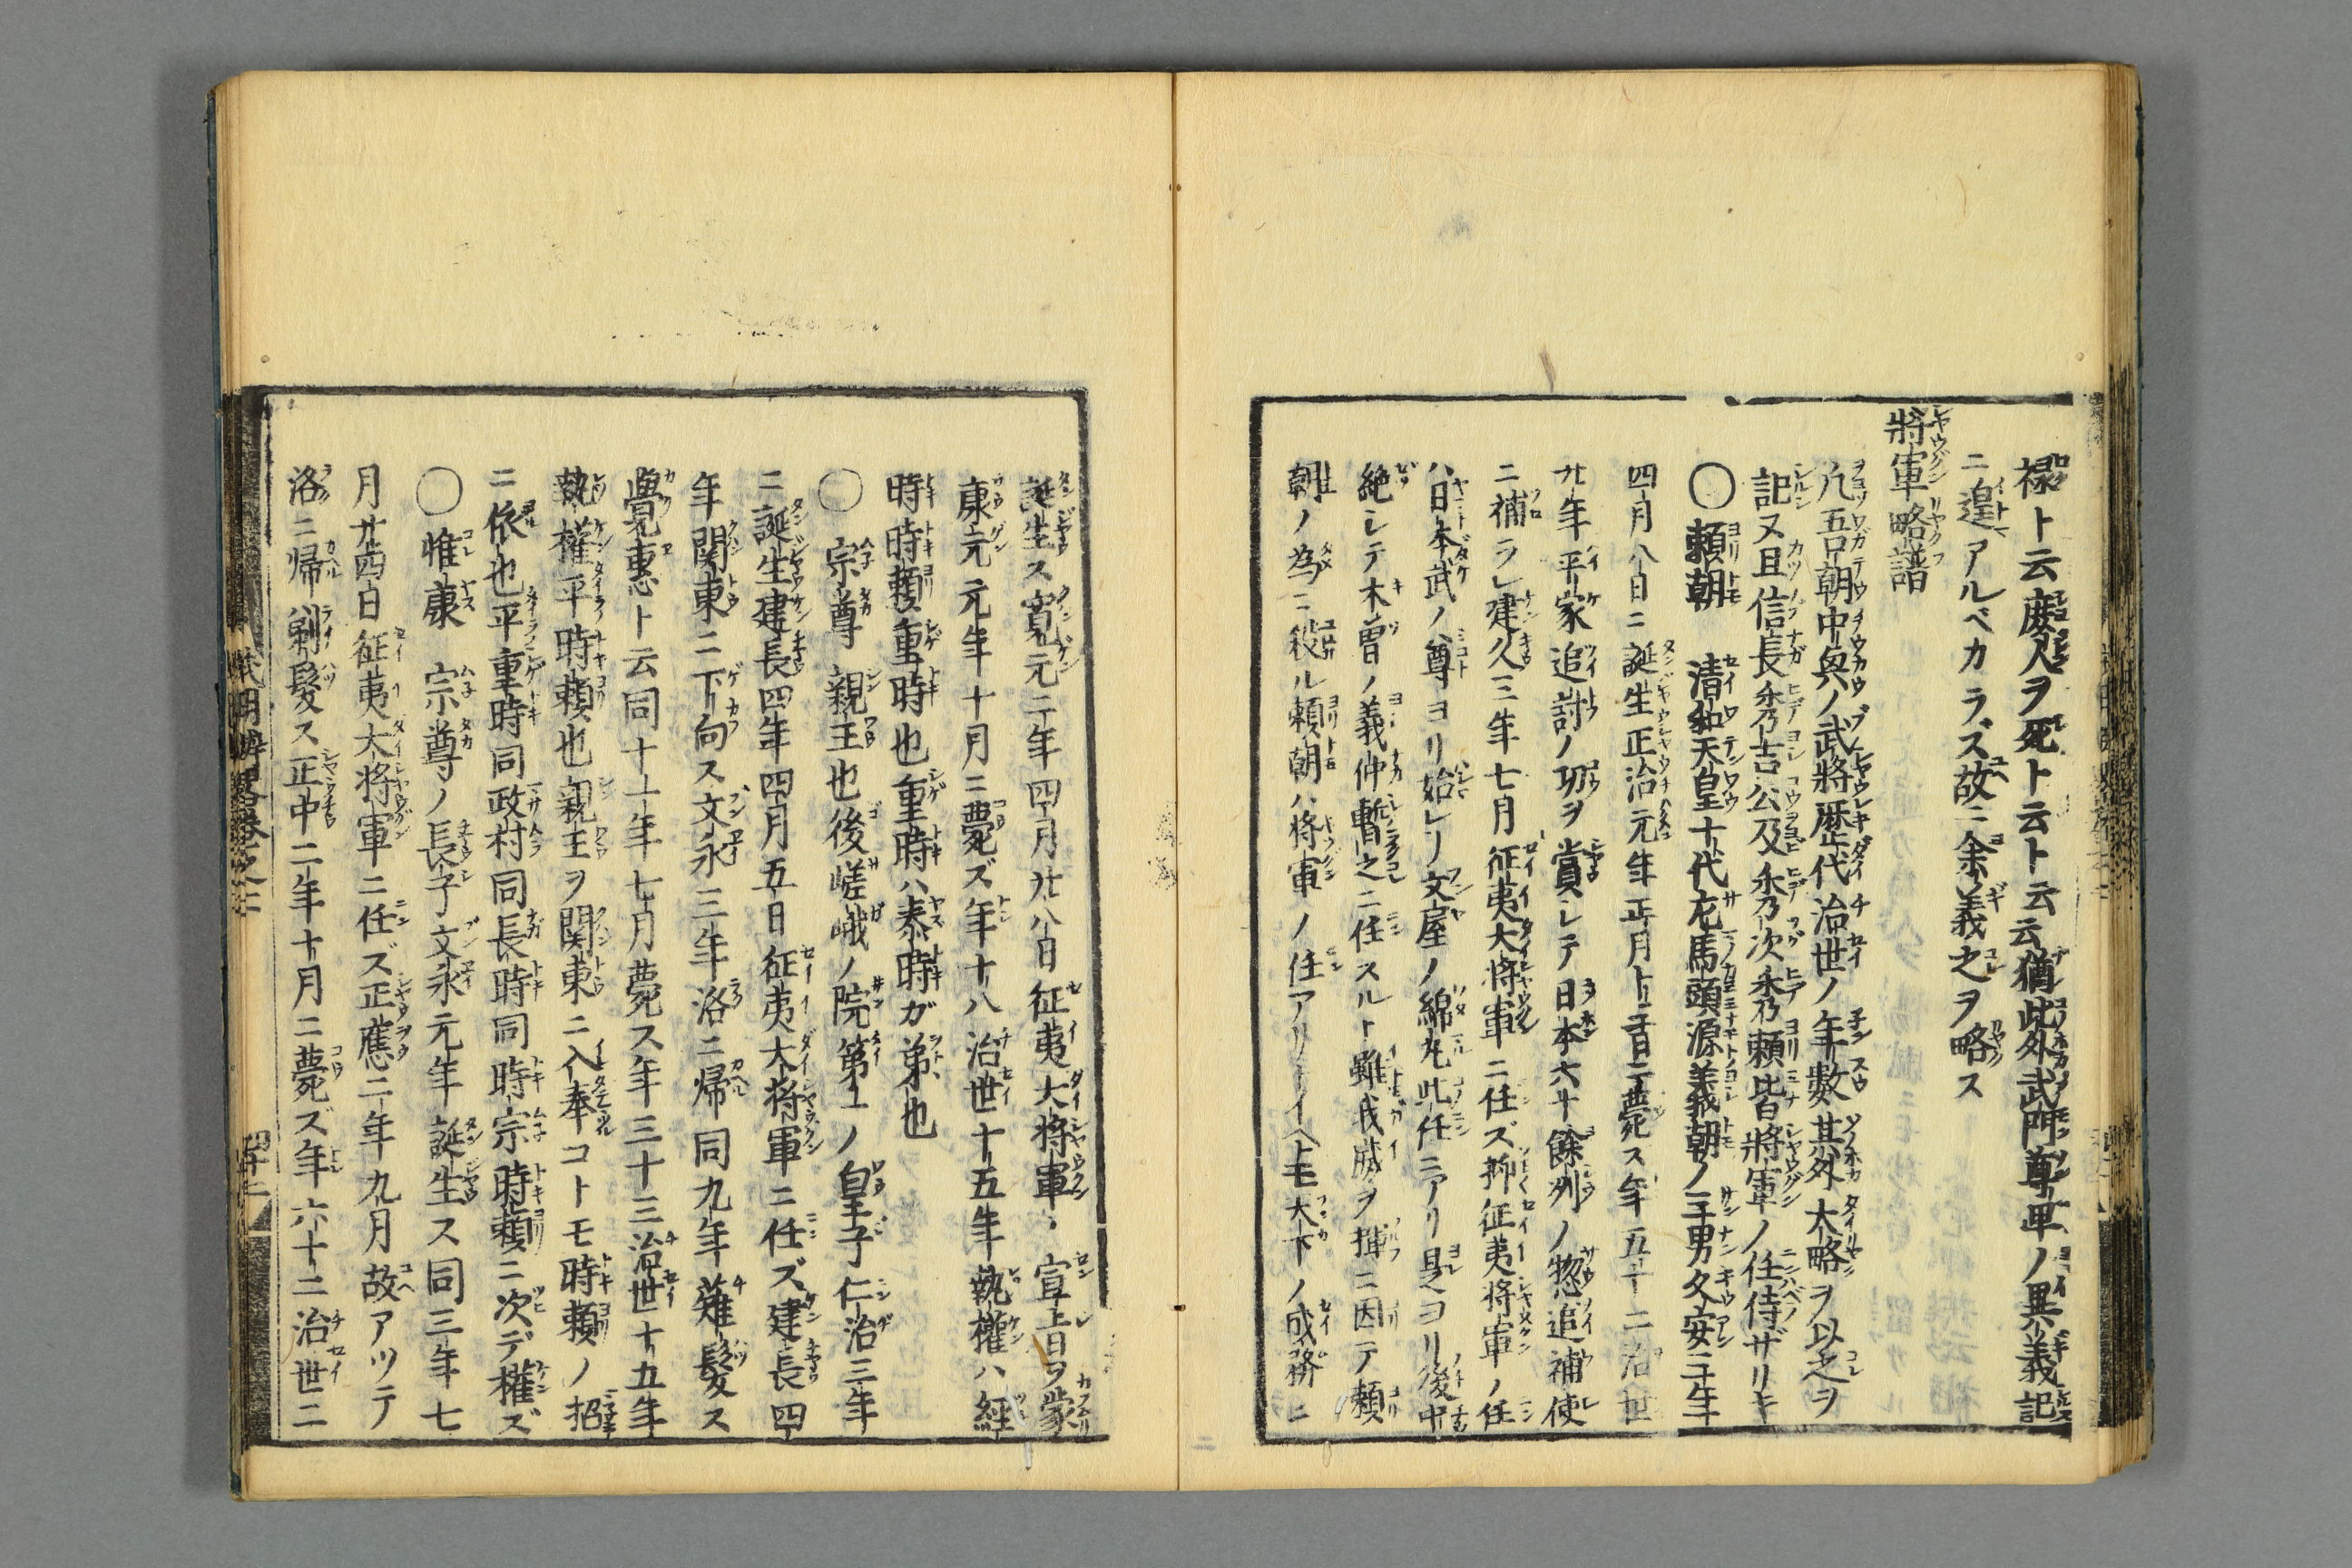 禄ト云庶人ヲ死ト云ト云云猶此外武門尊卑ノ異義記
ニ遑アルベカラズ故ニ余義之ヲ略ス
將軍略譜
凡吾朝中興ノ武將歴代治世ノ年數其外大略ヲ以之ヲ
記又且信長秀吉公及秀次秀頼皆將軍ノ任侍ザリキ
〇頼朝 清和天皇十代左馬頭源義朝ノ三男久安三年
四月八日ニ誕生正治元年正月十三日ニ薨ス年五十二治世
廿年平家追討ノ功ヲ賞シテ日本六十餘州ノ惣追補使
ニ補ラレ建久三年七月征夷大将軍ニ任ズ抑征夷将軍ノ任
ハ日本武ノ尊ヨリ始レリ文屋ノ綿丸此任ニアリ是ヨリ後中
絶シテ木曽ノ義仲暫之ニ任スルト雖我威ヲ揮ニ因テ頼
朝ノ為ニ殺ル頼朝ハ将軍ノ任アリトイヘトモ天下ノ成務ニ
誕生ス寛元二年四月廿八日征夷大将軍ノ宣旨ヲ蒙
康元元年十月ニ薨ズ年十八治世十五年執權ハ經
時時頼重時也重時ハ泰時ガ弟也
〇宗尊 親王也後嵯峨ノ院第一ノ皇子仁治三年
ニ誕生建長四年四月五日征夷大将軍ニ任ズ建長四
年関東ニ下向ス文永三年洛ニ帰同九年薙髮ス
覺惠ト云同十一年七月薨ス年三十三治世十五年
執權平時頼也親王ヲ関東ニ入奉コトモ時頼ノ招
ニ依也平重時同政村同長時同時宗時頼ニ次デ權ズ
〇惟康 宗尊ノ長子文永元年誕生ス同三年七
月廿四日征夷大将軍ニ任ズ正應二年九月故アツテ
洛ニ帰剃髮ス正中二年十月ニ薨ズ年六十二治世二